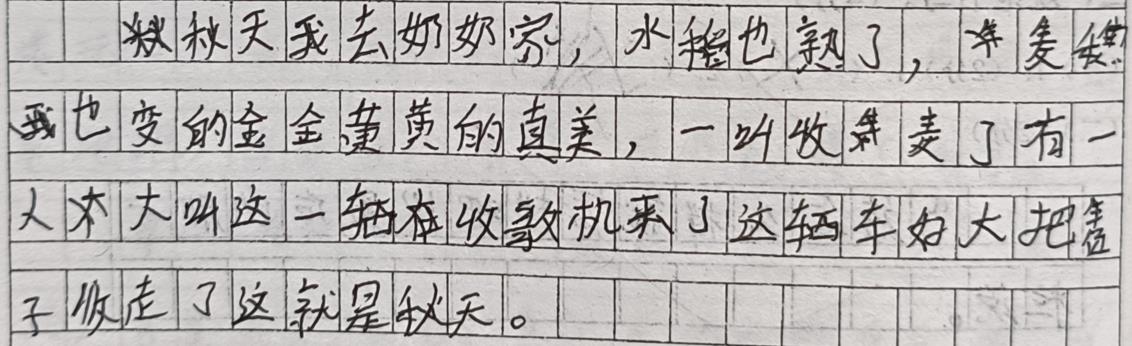 秋天我去奶奶家，水稻也熟了，麦
也变的金金黄黄的真美，一叫收麦了有一
人大叫这一辆收机来了这辆车好大把
子收走了这就是秋天。